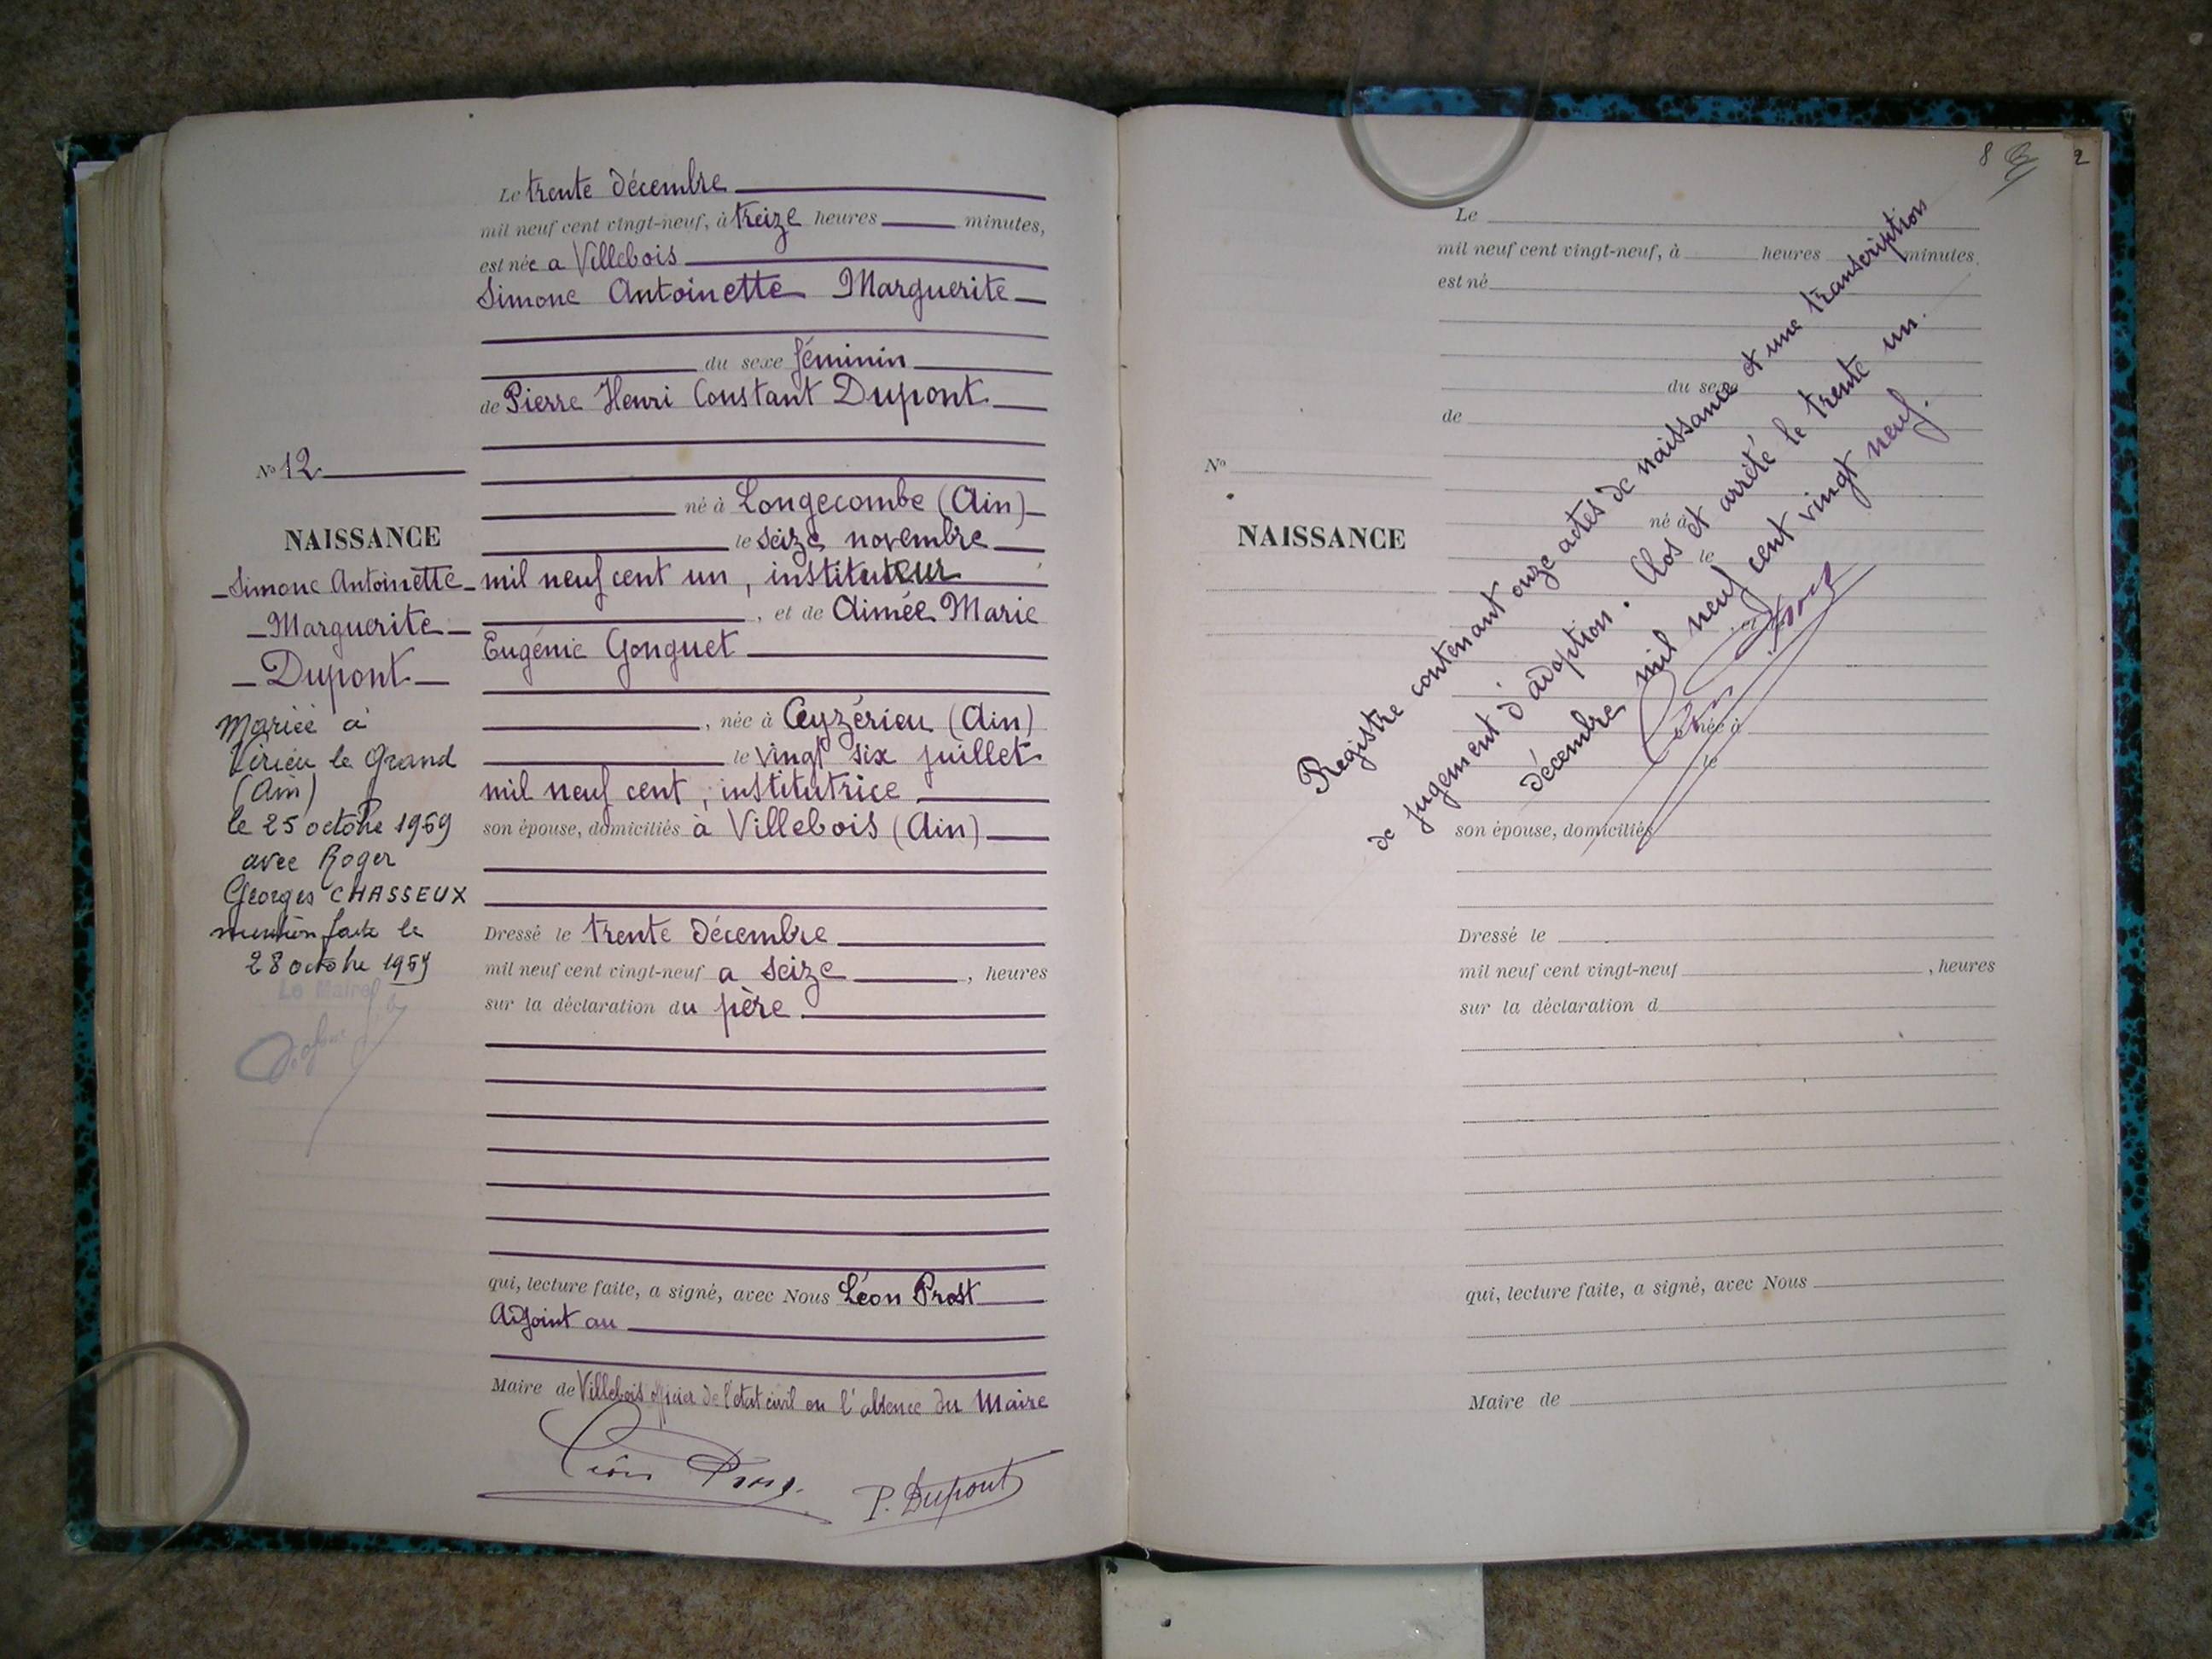 Le trente décembre
mil neuf cent vingt-neuf, à treize heures minutes,
est née a Villebois
Simone Antoinette Marguerite
du sexe féminin
de Pierre Henri Constant Dupont
né à Longecombe (Ain)
le seize novembre
mil neuf cent un, instituteur
, et de Aimée Marie
Eugénie Gonguet
, née à Ceyzérieu (Ain)
le vingt six juillet
mil neuf cent, institutrice
son épouse, domiciliés à Villebois (Ain)
Dressé le trente décembre
mil neuf cent vingt-neuf a seize , heures
sur la déclaration du père
qui, lecture faite, a signé, avec Nous Léon Prost
Adjoint au
Maire de Villebois officier de l'état civil en l'absence du Maire
Léon Prost
P. Dupont
No 12
NAISSANCE
Simone Antoinette
Marguerite
Dupont
Mariée à
Virieu le Grand
(Ain)
le 25 octobre 1959
avec Roger
Georges CHASSEUX
mention faite le
28 octobre 1959
Le Maire
8
2
Le
mil neuf cent vingt-neuf, à heures minutes
est né
du sexe
de
No
NAISSANCE
né à
le
, et de
née à
le
son épouse, domiciliés
Dressé le
mil neuf cent vingt-neuf , heures
sur la déclaration d
qui, lecture faite, a signé, avec Nous
Maire de
Registre contenant onze actes de naissance et une transcription
de jugement d'adoption. Clos et arrêté le trente un
décembre mil neuf cent vingt neuf.